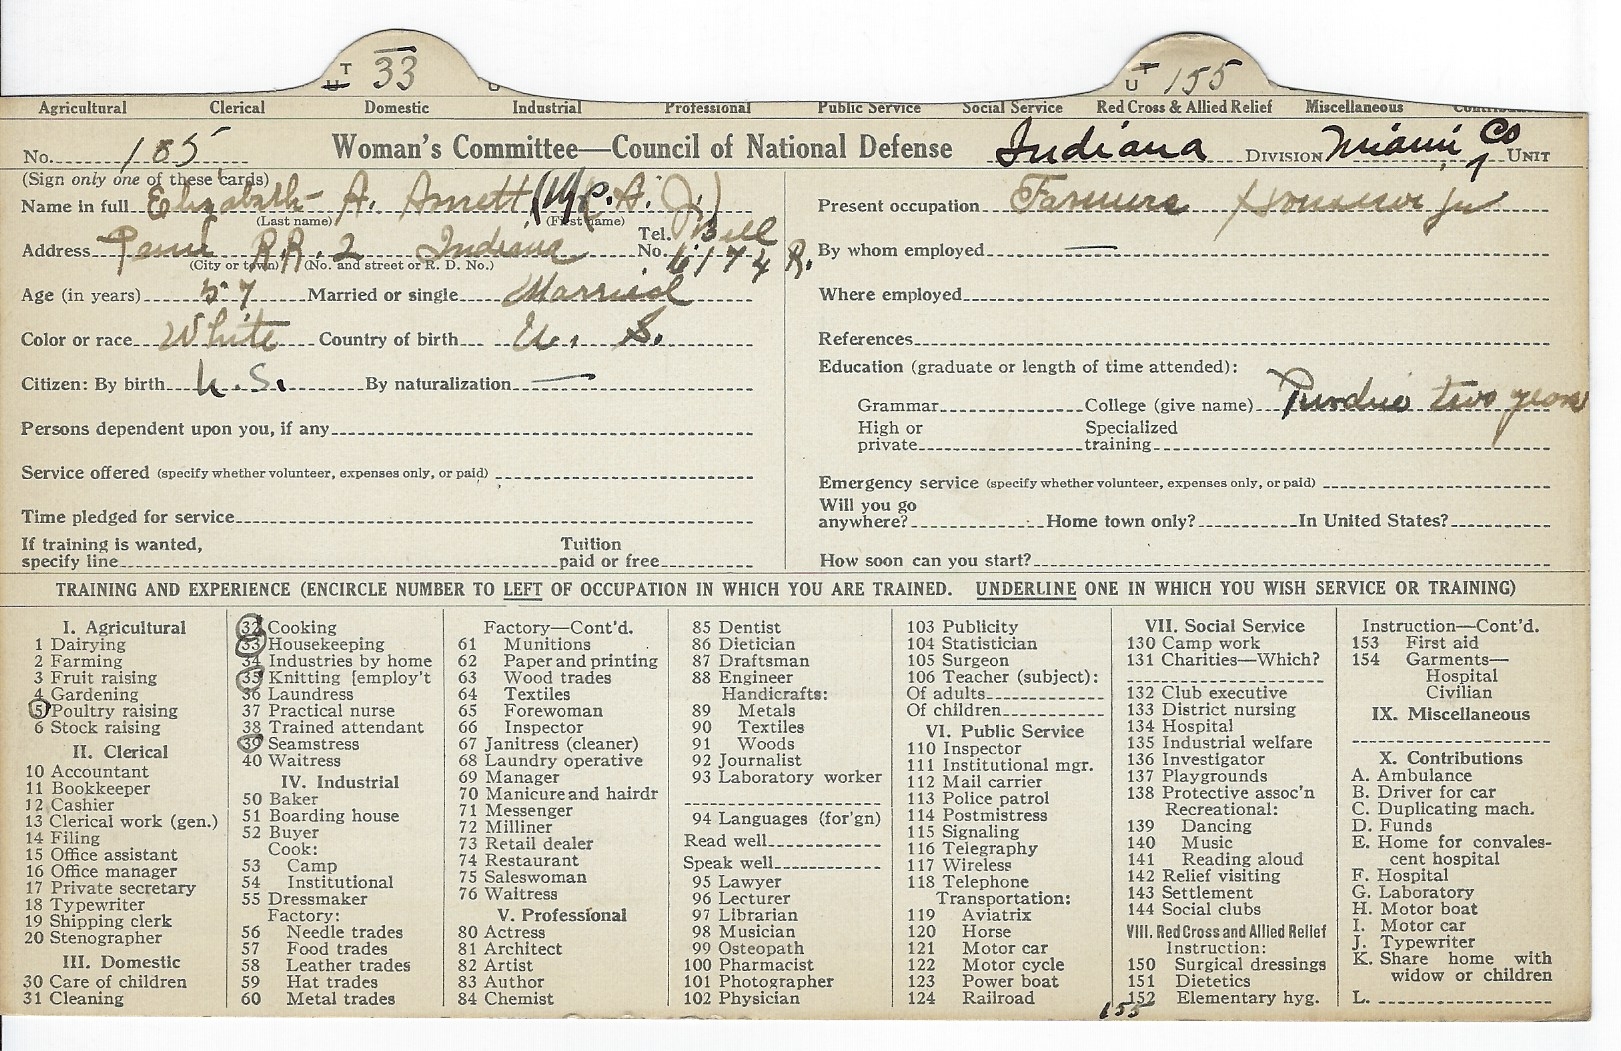 T U 33 T U 155
Agricultural Clerical Domestic Industrial Professional Public Service Social Service Red Cross & Allied Relief Miscellaneous
No. 185 Woman's Committee—Council of National Defense Indiana DIVISION Miami Co UNIT
(Sign only one of these cards)
Name in full Elizabeth A. Arnett
(Last name) (First name)
Address R.R. 2 Indiana Tel. No. Bell 6174 R.
(City or town) (No. and street or R. D. No.)
Age (in years) 57 Married or single Married
Color or race White Country of birth U. S.
Citizen: By birth U.S. By naturalization —
Persons dependent upon you, if any
Service offered (specify whether volunteer, expenses only, or paid)
Time pledged for service
If training is wanted, specify line Tuition paid or free
Present occupation Farmers
By whom employed —
Where employed
References
Education (graduate or length of time attended):
Grammar College (give name) Purdue two years
High or private Specialized training
Emergency service (specify whether volunteer, expenses only, or paid)
Will you go anywhere? Home town only? In United States?
How soon can you start?
TRAINING AND EXPERIENCE (ENCIRCLE NUMBER TO LEFT OF OCCUPATION IN WHICH YOU ARE TRAINED. UNDERLINE ONE IN WHICH YOU WISH SERVICE OR TRAINING)
I. Agricultural
1 Dairying
2 Farming
3 Fruit raising
4 Gardening
5 Poultry raising
6 Stock raising
II. Clerical
10 Accountant
11 Bookkeeper
12 Cashier
13 Clerical work (gen.)
14 Filing
15 Office assistant
16 Office manager
17 Private secretary
18 Typewriter
19 Shipping clerk
20 Stenographer
III. Domestic
30 Care of children
31 Cleaning
32 Cooking
33 Housekeeping
34 Industries by home
35 Knitting [employ't
36 Laundress
37 Practical nurse
38 Trained attendant
39 Seamstress
40 Waitress
IV. Industrial
50 Baker
51 Boarding house
52 Buyer
Cook:
53 Camp
54 Institutional
55 Dressmaker
Factory:
56 Needle trades
57 Food trades
58 Leather trades
59 Hat trades
60 Metal trades
Factory—Cont'd.
61 Munitions
62 Paper and printing
63 Wood trades
64 Textiles
65 Forewoman
66 Inspector
67 Janitress (cleaner)
68 Laundry operative
69 Manager
70 Manicure and hairdr
71 Messenger
72 Milliner
73 Retail dealer
74 Restaurant
75 Saleswoman
76 Waitress
V. Professional
80 Actress
81 Architect
82 Artist
83 Author
84 Chemist
85 Dentist
86 Dietician
87 Draftsman
88 Engineer
Handicrafts:
89 Metals
90 Textiles
91 Woods
92 Journalist
93 Laboratory worker
94 Languages (for'gn)
Read well
Speak well
95 Lawyer
96 Lecturer
97 Librarian
98 Musician
99 Osteopath
100 Pharmacist
101 Photographer
102 Physician
103 Publicity
104 Statistician
105 Surgeon
106 Teacher (subject):
Of adults
Of children
VI. Public Service
110 Inspector
111 Institutional mgr.
112 Mail carrier
113 Police patrol
114 Postmistress
115 Signaling
116 Telegraphy
117 Wireless
118 Telephone
Transportation:
119 Aviatrix
120 Horse
121 Motor car
122 Motor cycle
123 Power boat
124 Railroad
VII. Social Service
130 Camp work
131 Charities—Which?
132 Club executive
133 District nursing
134 Hospital
135 Industrial welfare
136 Investigator
137 Playgrounds
138 Protective assoc'n
Recreational:
139 Dancing
140 Music
141 Reading aloud
142 Relief visiting
143 Settlement
144 Social clubs
VIII. Red Cross and Allied Relief
Instruction:
150 Surgical dressings
151 Dietetics
152 Elementary hyg.
155
Instruction—Cont'd.
153 First aid
154 Garments—
Hospital
Civilian
IX. Miscellaneous
X. Contributions
A. Ambulance
B. Driver for car
C. Duplicating mach.
D. Funds
E. Home for convales-
cent hospital
F. Hospital
G. Laboratory
H. Motor boat
I. Motor car
J. Typewriter
K. Share home with
widow or children
L.